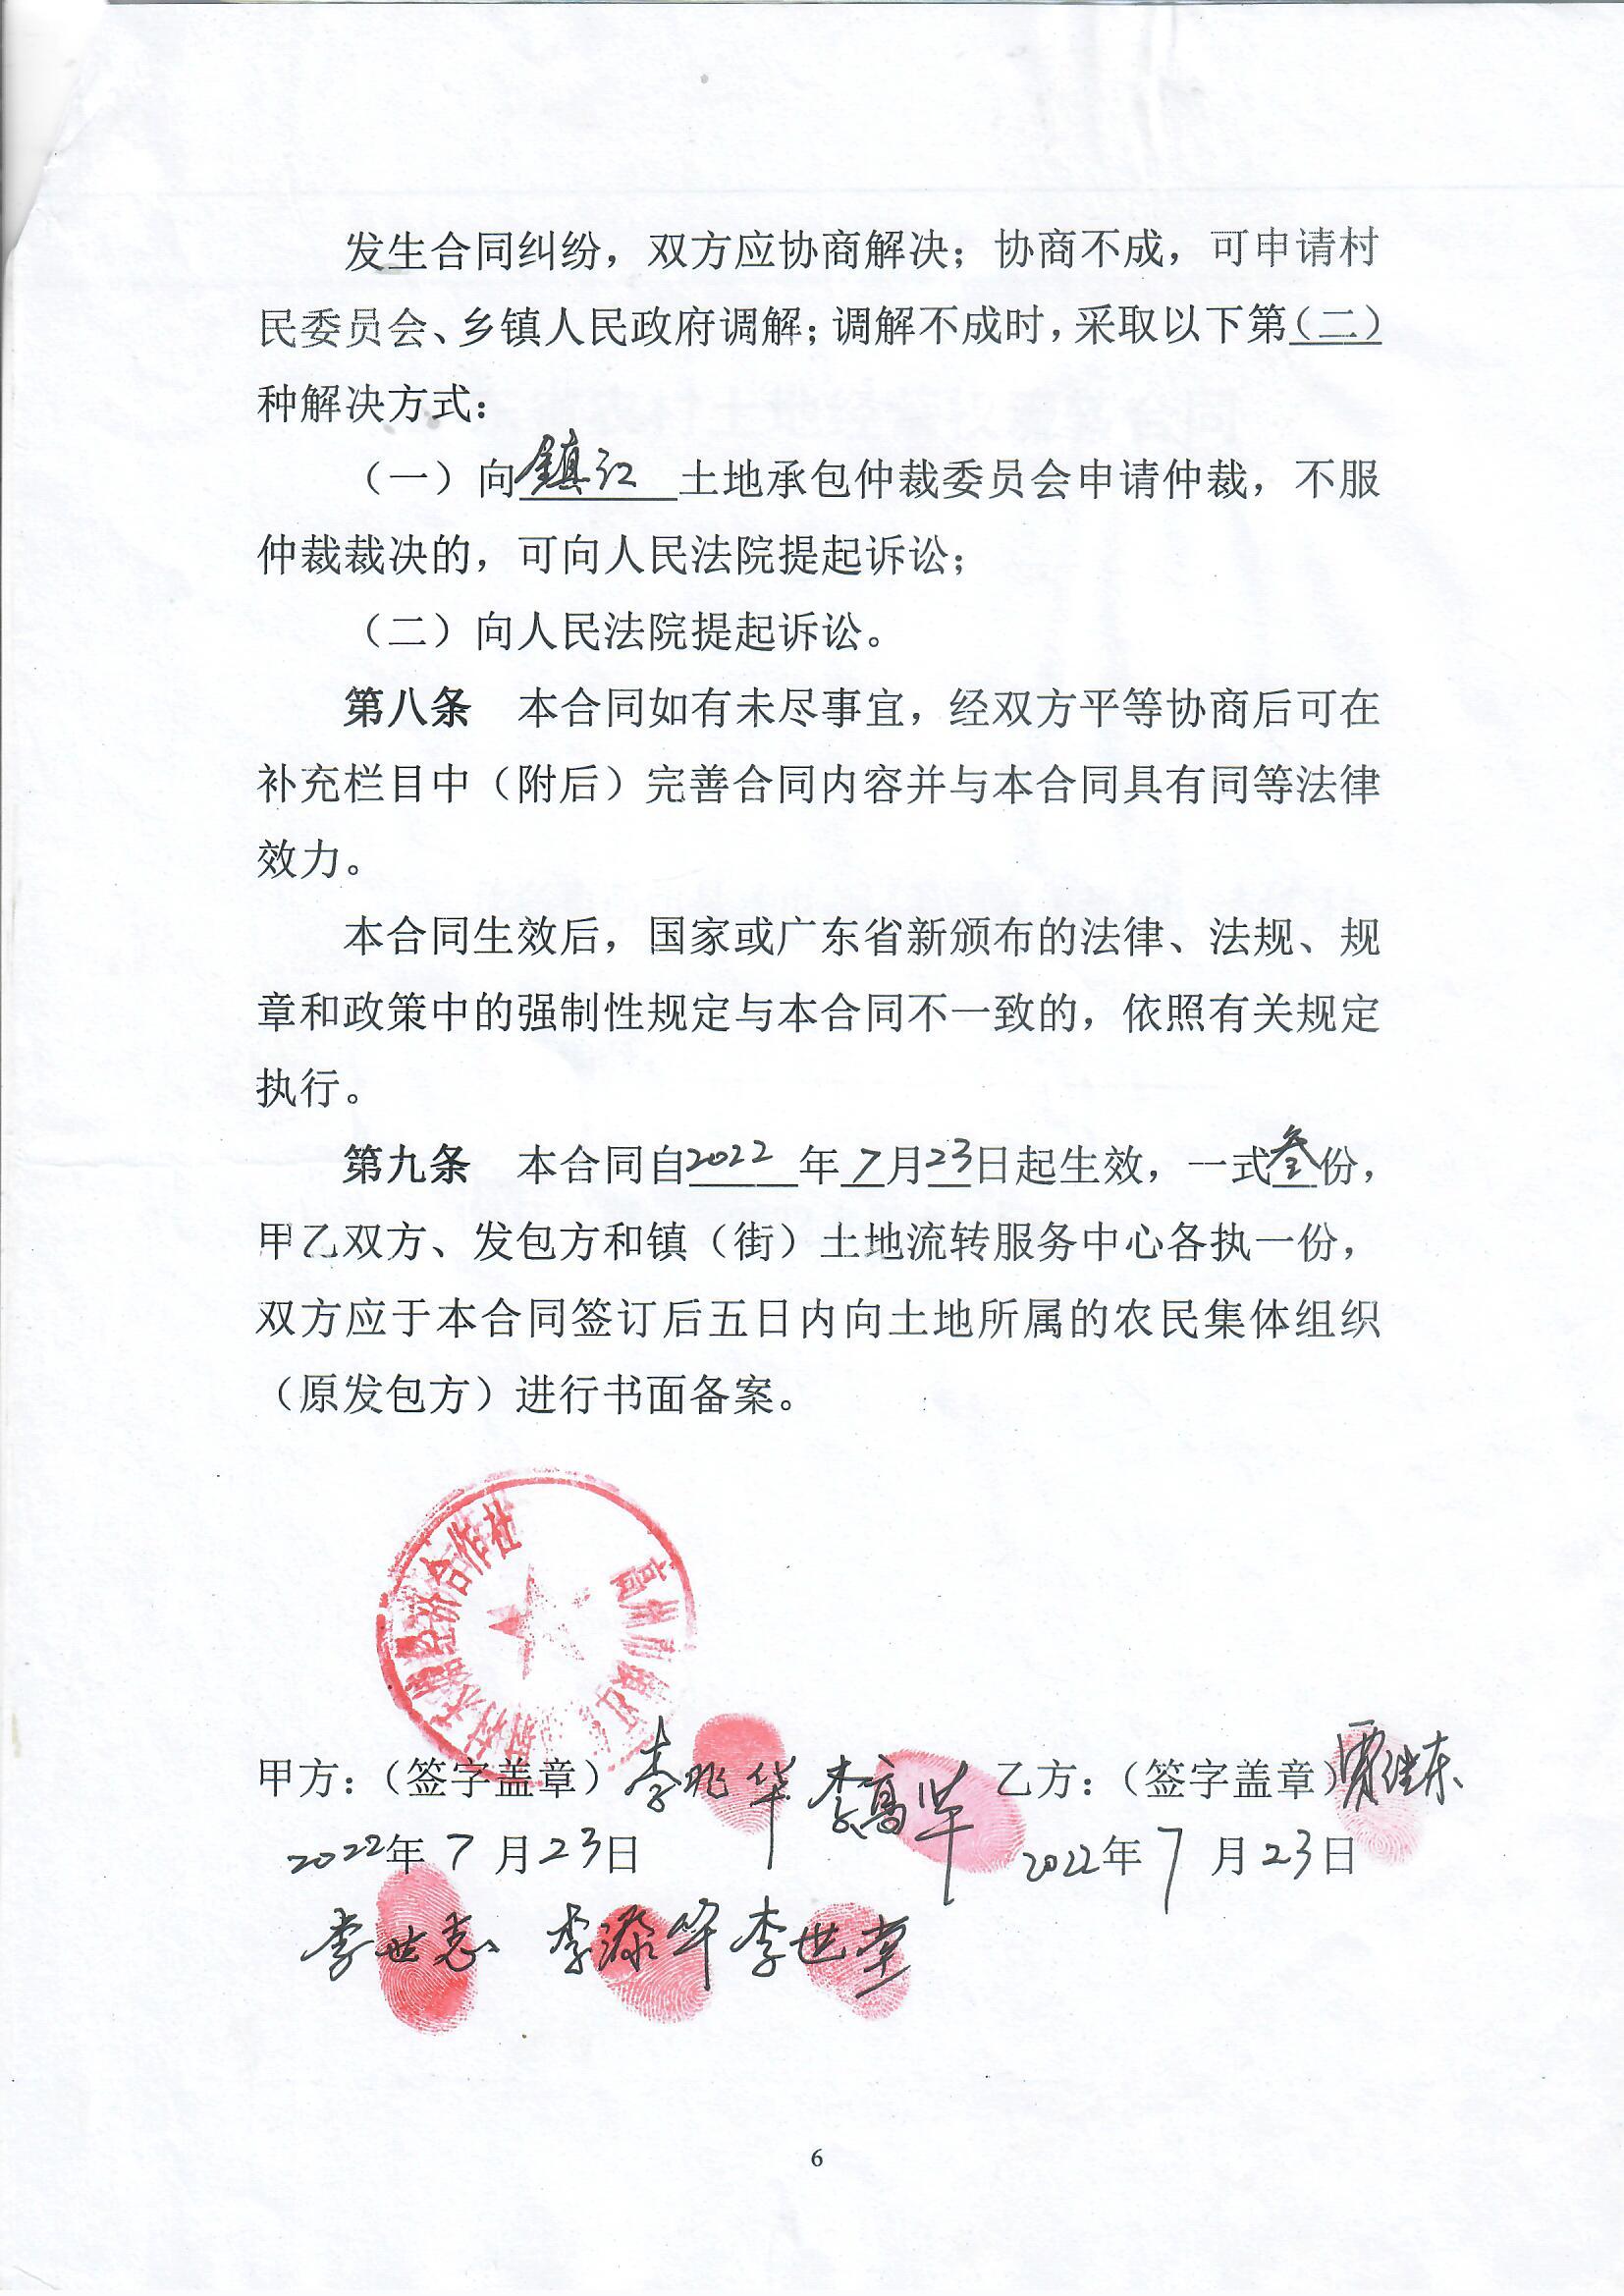 发生合同纠纷，双方应协商解决；协商不成，可申请村
民委员会、乡镇人民政府调解；调解不成时，采取以下第（二）
种解决方式：
（一）向镇江土地承包仲裁委员会申请仲裁，不服
仲裁裁决的，可向人民法院提起诉讼；
（二）向人民法院提起诉讼。
第八条 本合同如有未尽事宜，经双方平等协商后可在
补充栏目中（附后）完善合同内容并与本合同具有同等法律
效力。
本合同生效后，国家或广东省新颁布的法律、法规、规
章和政策中的强制性规定与本合同不一致的，依照有关规定
执行。
第九条 本合同自2022年7月23日起生效，一式叁份，
甲乙双方、发包方和镇（街）土地流转服务中心各执一份，
双方应于本合同签订后五日内向土地所属的农民集体组织
（原发包方）进行书面备案。
高州市镇江 村 经济合作社
甲方：（签字盖章）李兆华 李高 乙方：（签字盖章）
2022年7月23日 2022年7月23日
李世志 李 李世
6